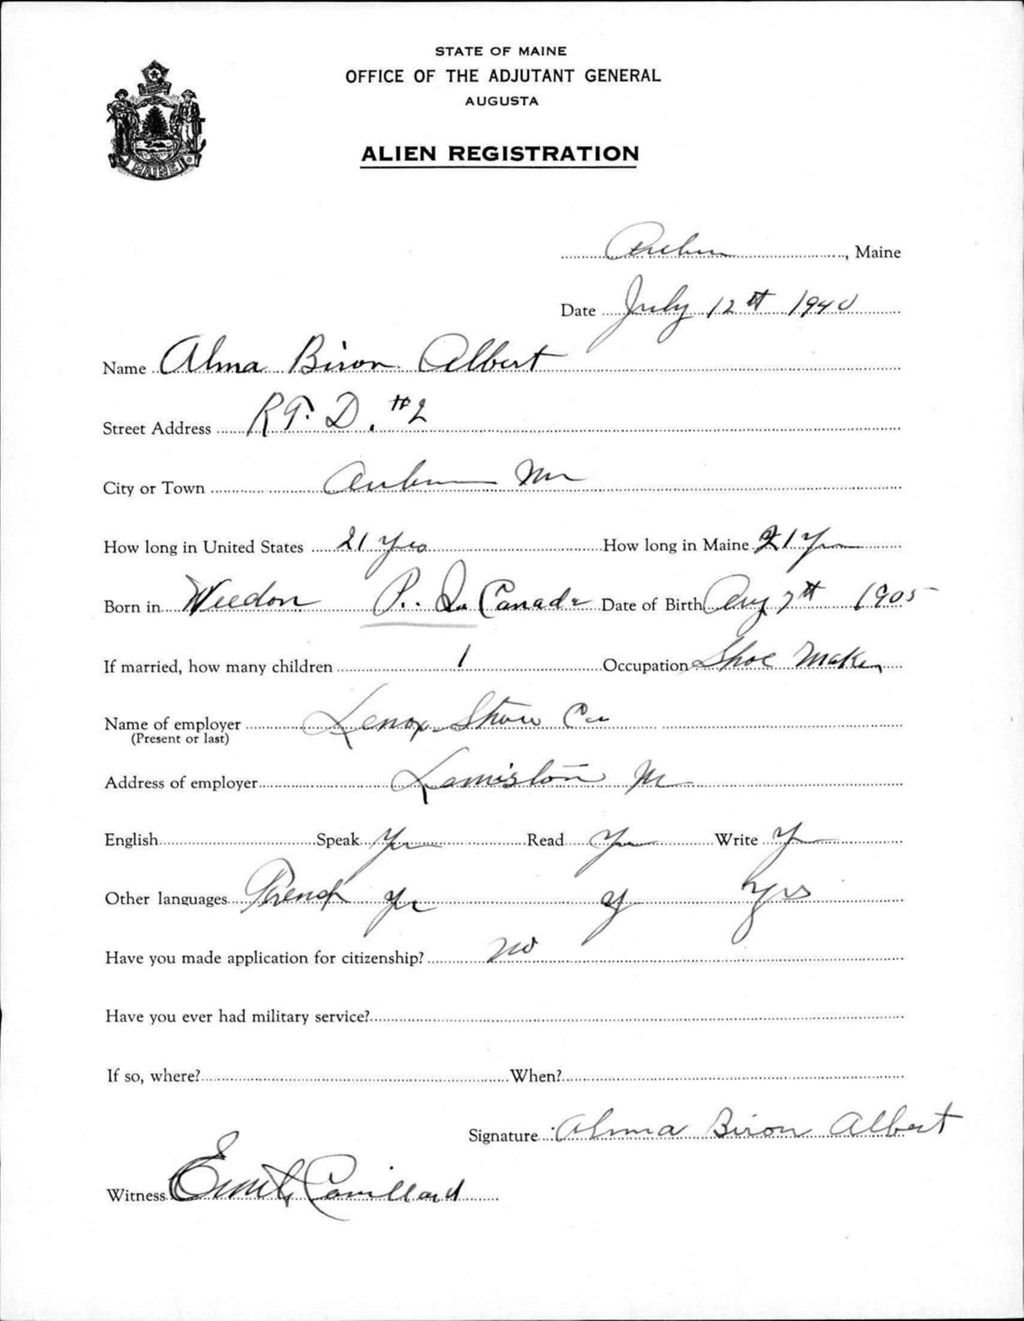 STATE OF MAINE
OFFICE OF THE ADJUTANT GENERAL
AUGUSTA
ALIEN REGISTRATION
MAINE
Auburn, Maine
Date July 12th 1940
Name Alma Biron Albert
Street Address R F. D. #2
City or Town Auburn Me
How long in United States 21 Yrs How long in Maine 21 Yrs
Born in Weedon P. Q. Canada Date of Birth Aug 7th 1905
If married, how many children 1 Occupation Shoe Maker
Name of employer Lenox Shoe Co
(Present or last)
Address of employer Lewiston Me
English Speak Yes Read Yes Write Y
Other languages French Yes Y Yes
Have you made application for citizenship? no
Have you ever had military service?
If so, where? When?
Signature Alma Biron Albert
Witness